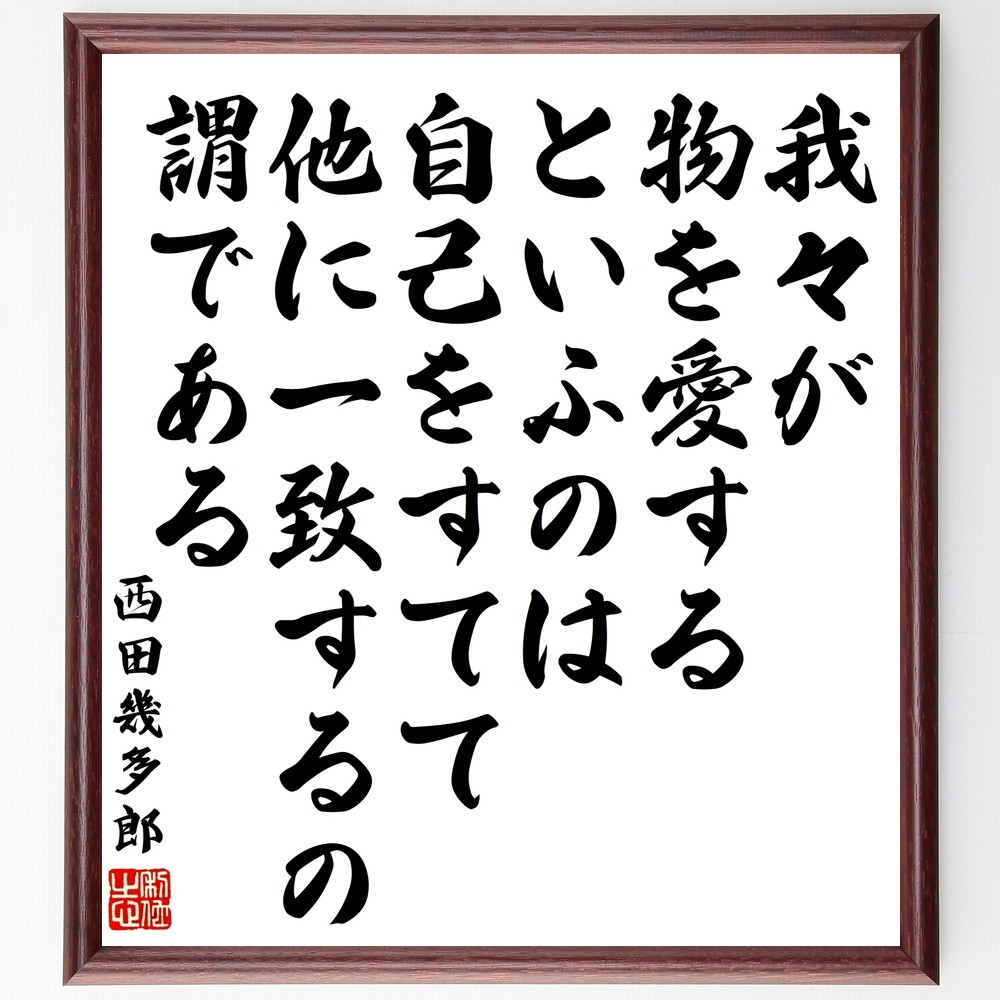 我々が
物を愛する
といふのは
自己をすてて
他に一致するの
謂である
西田幾多郎